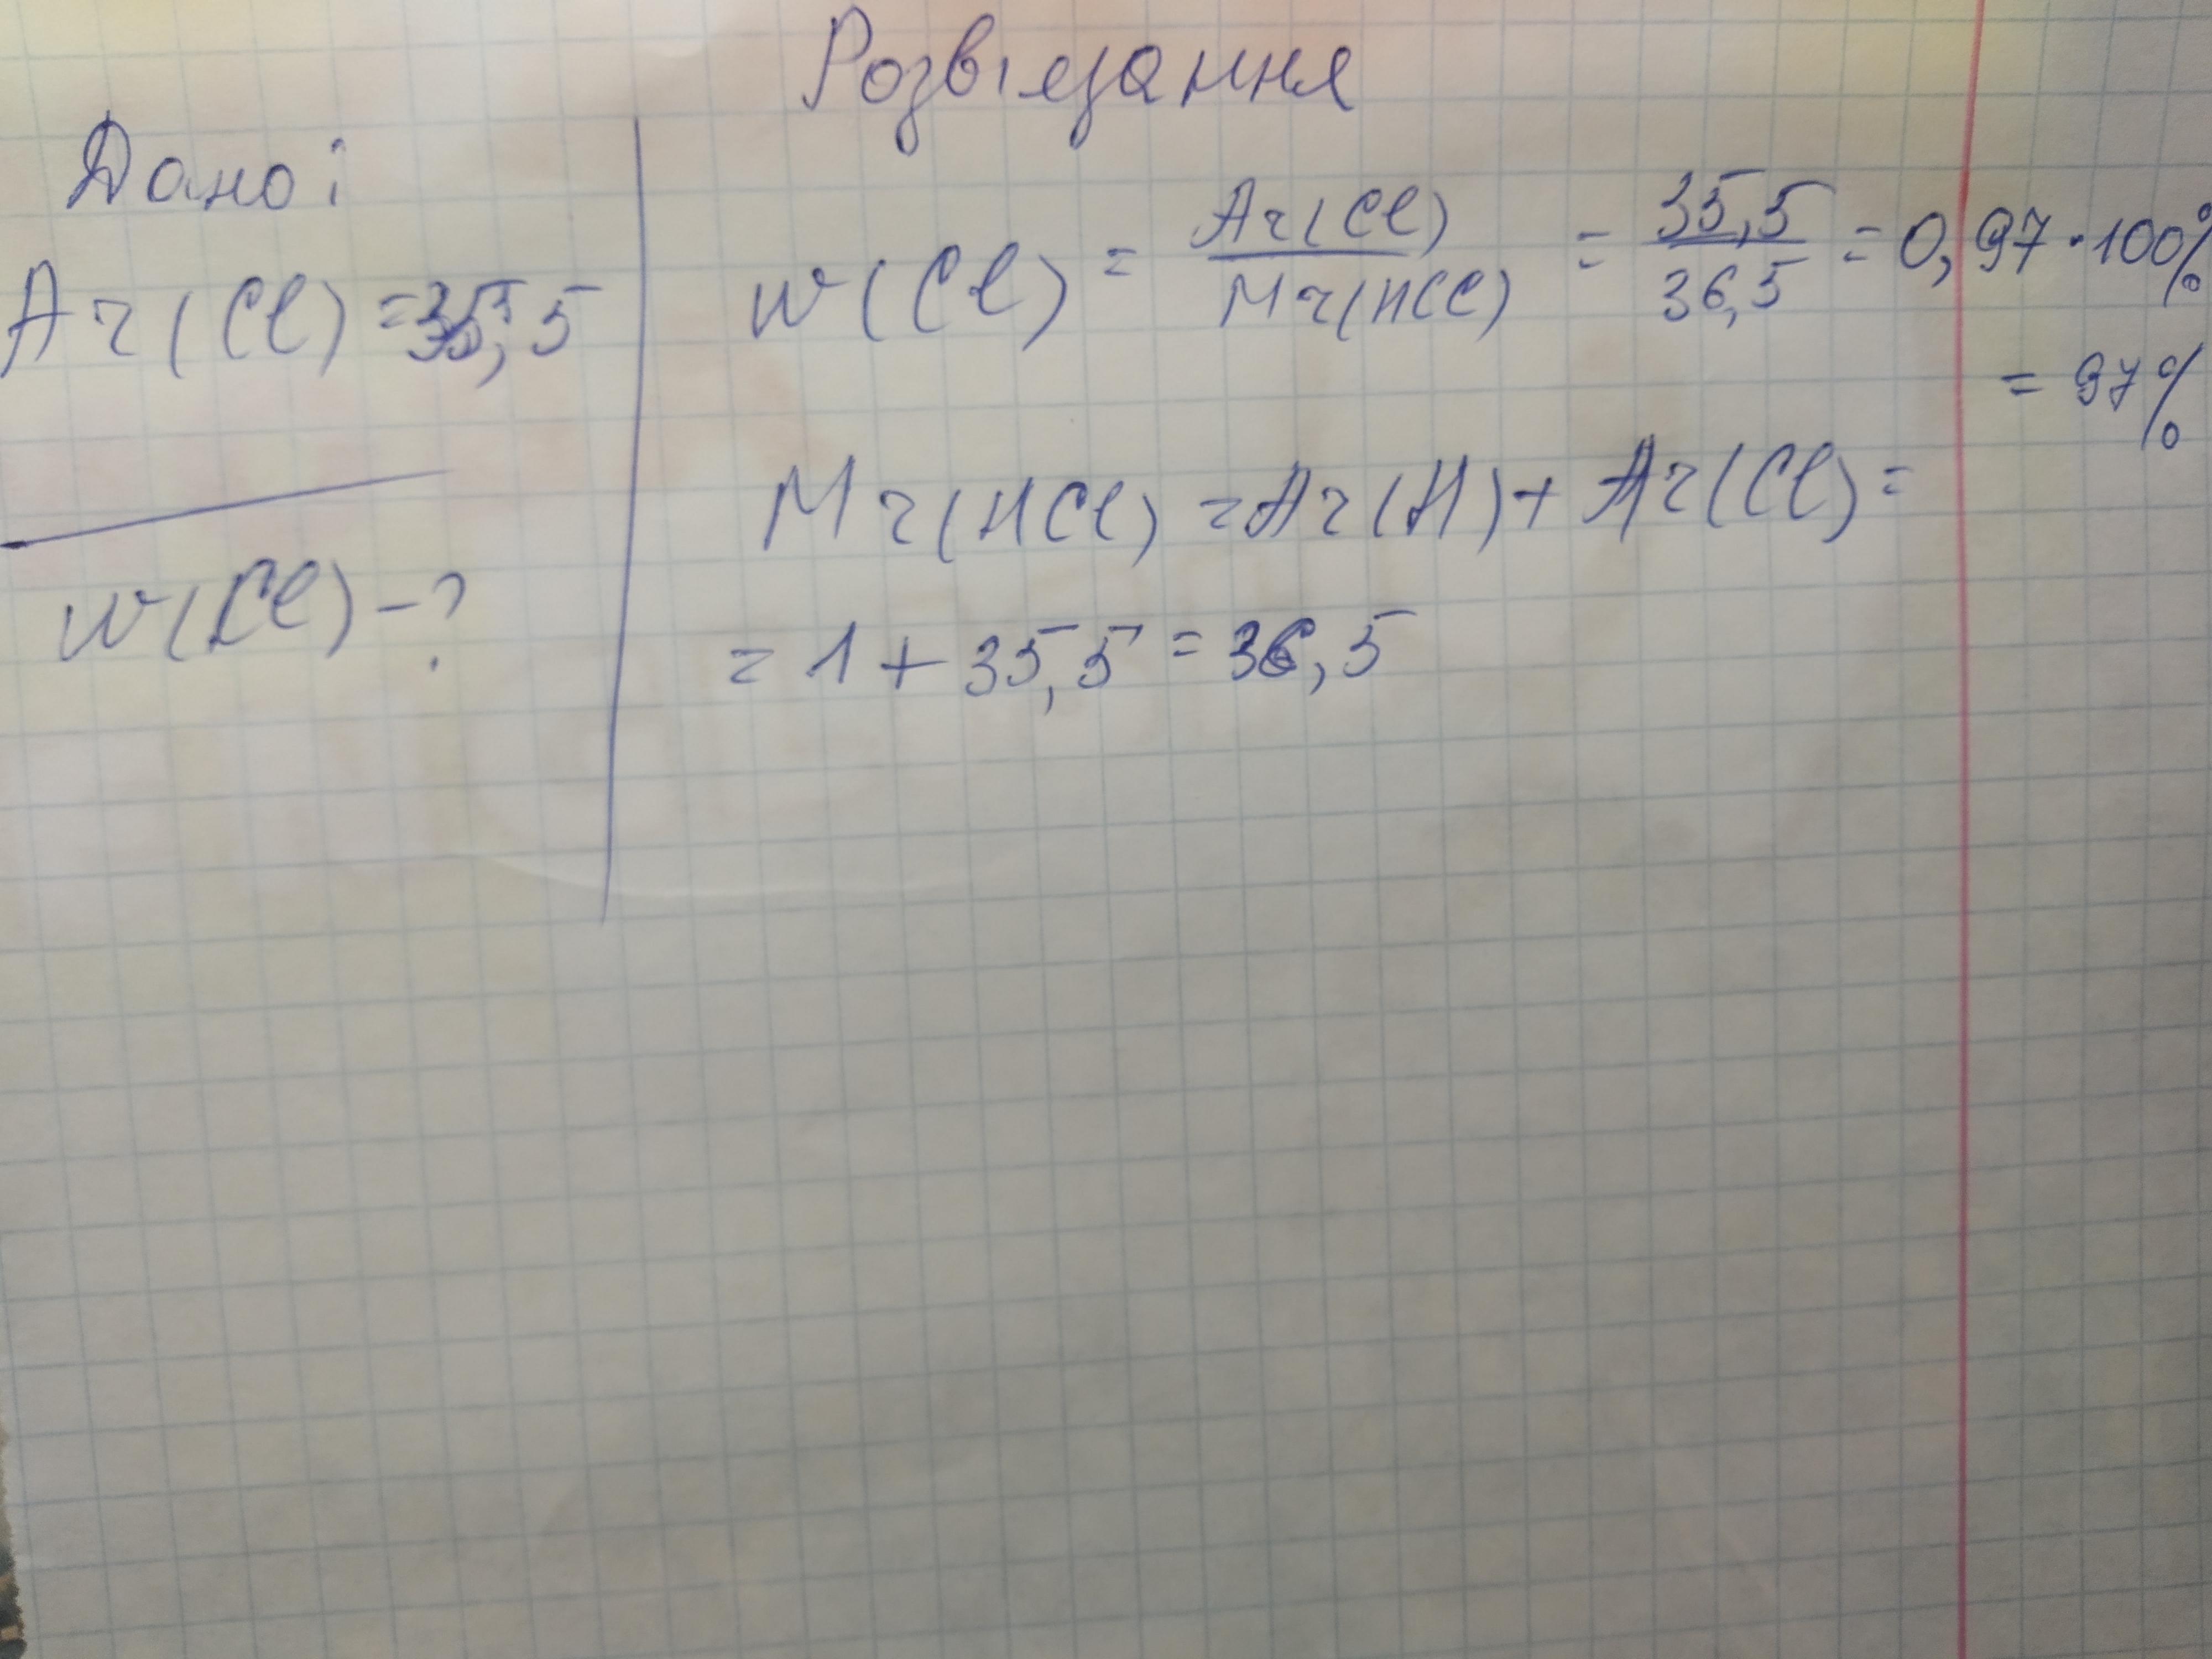 Розвʼязання
Дано:
Ar(Cl) = 35,5
w(Cl) - ?
w(Cl) = Ar(Cl) / Mr(HCl) = 35,5 / 36,5 = 0,97 · 100%
= 97%
Mr(HCl) = Ar(H) + Ar(Cl) =
= 1 + 35,5 = 36,5